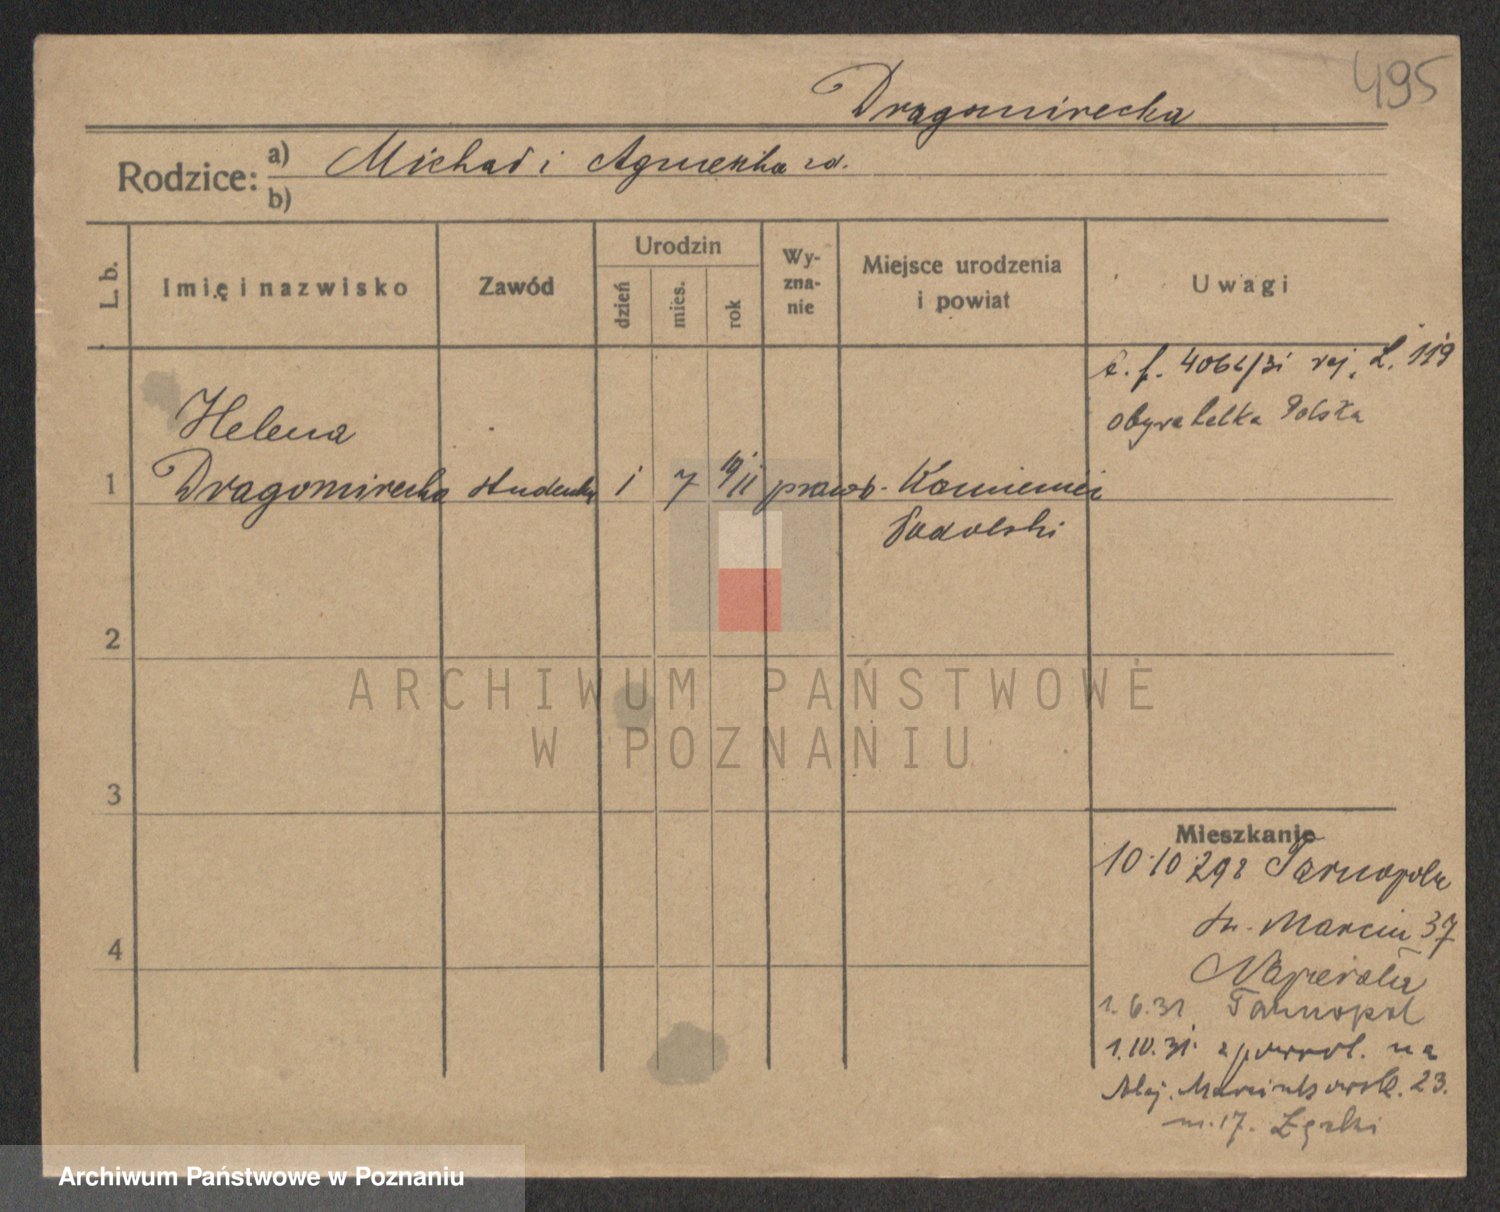 495
Dragomirecka
Rodzice: a) Michał i Agnieszka zd.
b)
L. b.
Imię i nazwisko
Zawód
Urodzin
dzień
mies.
rok
Wy-
zna-
nie
Miejsce urodzenia
i powiat
Uwagi
1
Helena
Dragomirecka
studentka
1
7
1911
prawo-
Kamieniec
Podolski
rej. L. 119
obywatelka Polska
2
3
4
Mieszkanie
10.10.29 z Tarnopola
Św. Marcin 37
1.6.31 Tarnopol
1.10.31. z powrot. na
Alej. Marcinkowsk. 23.
m. 17.
ARCHIWUM PAŃSTWOWE
W POZNANIU
Archiwum Państwowe w Poznaniu